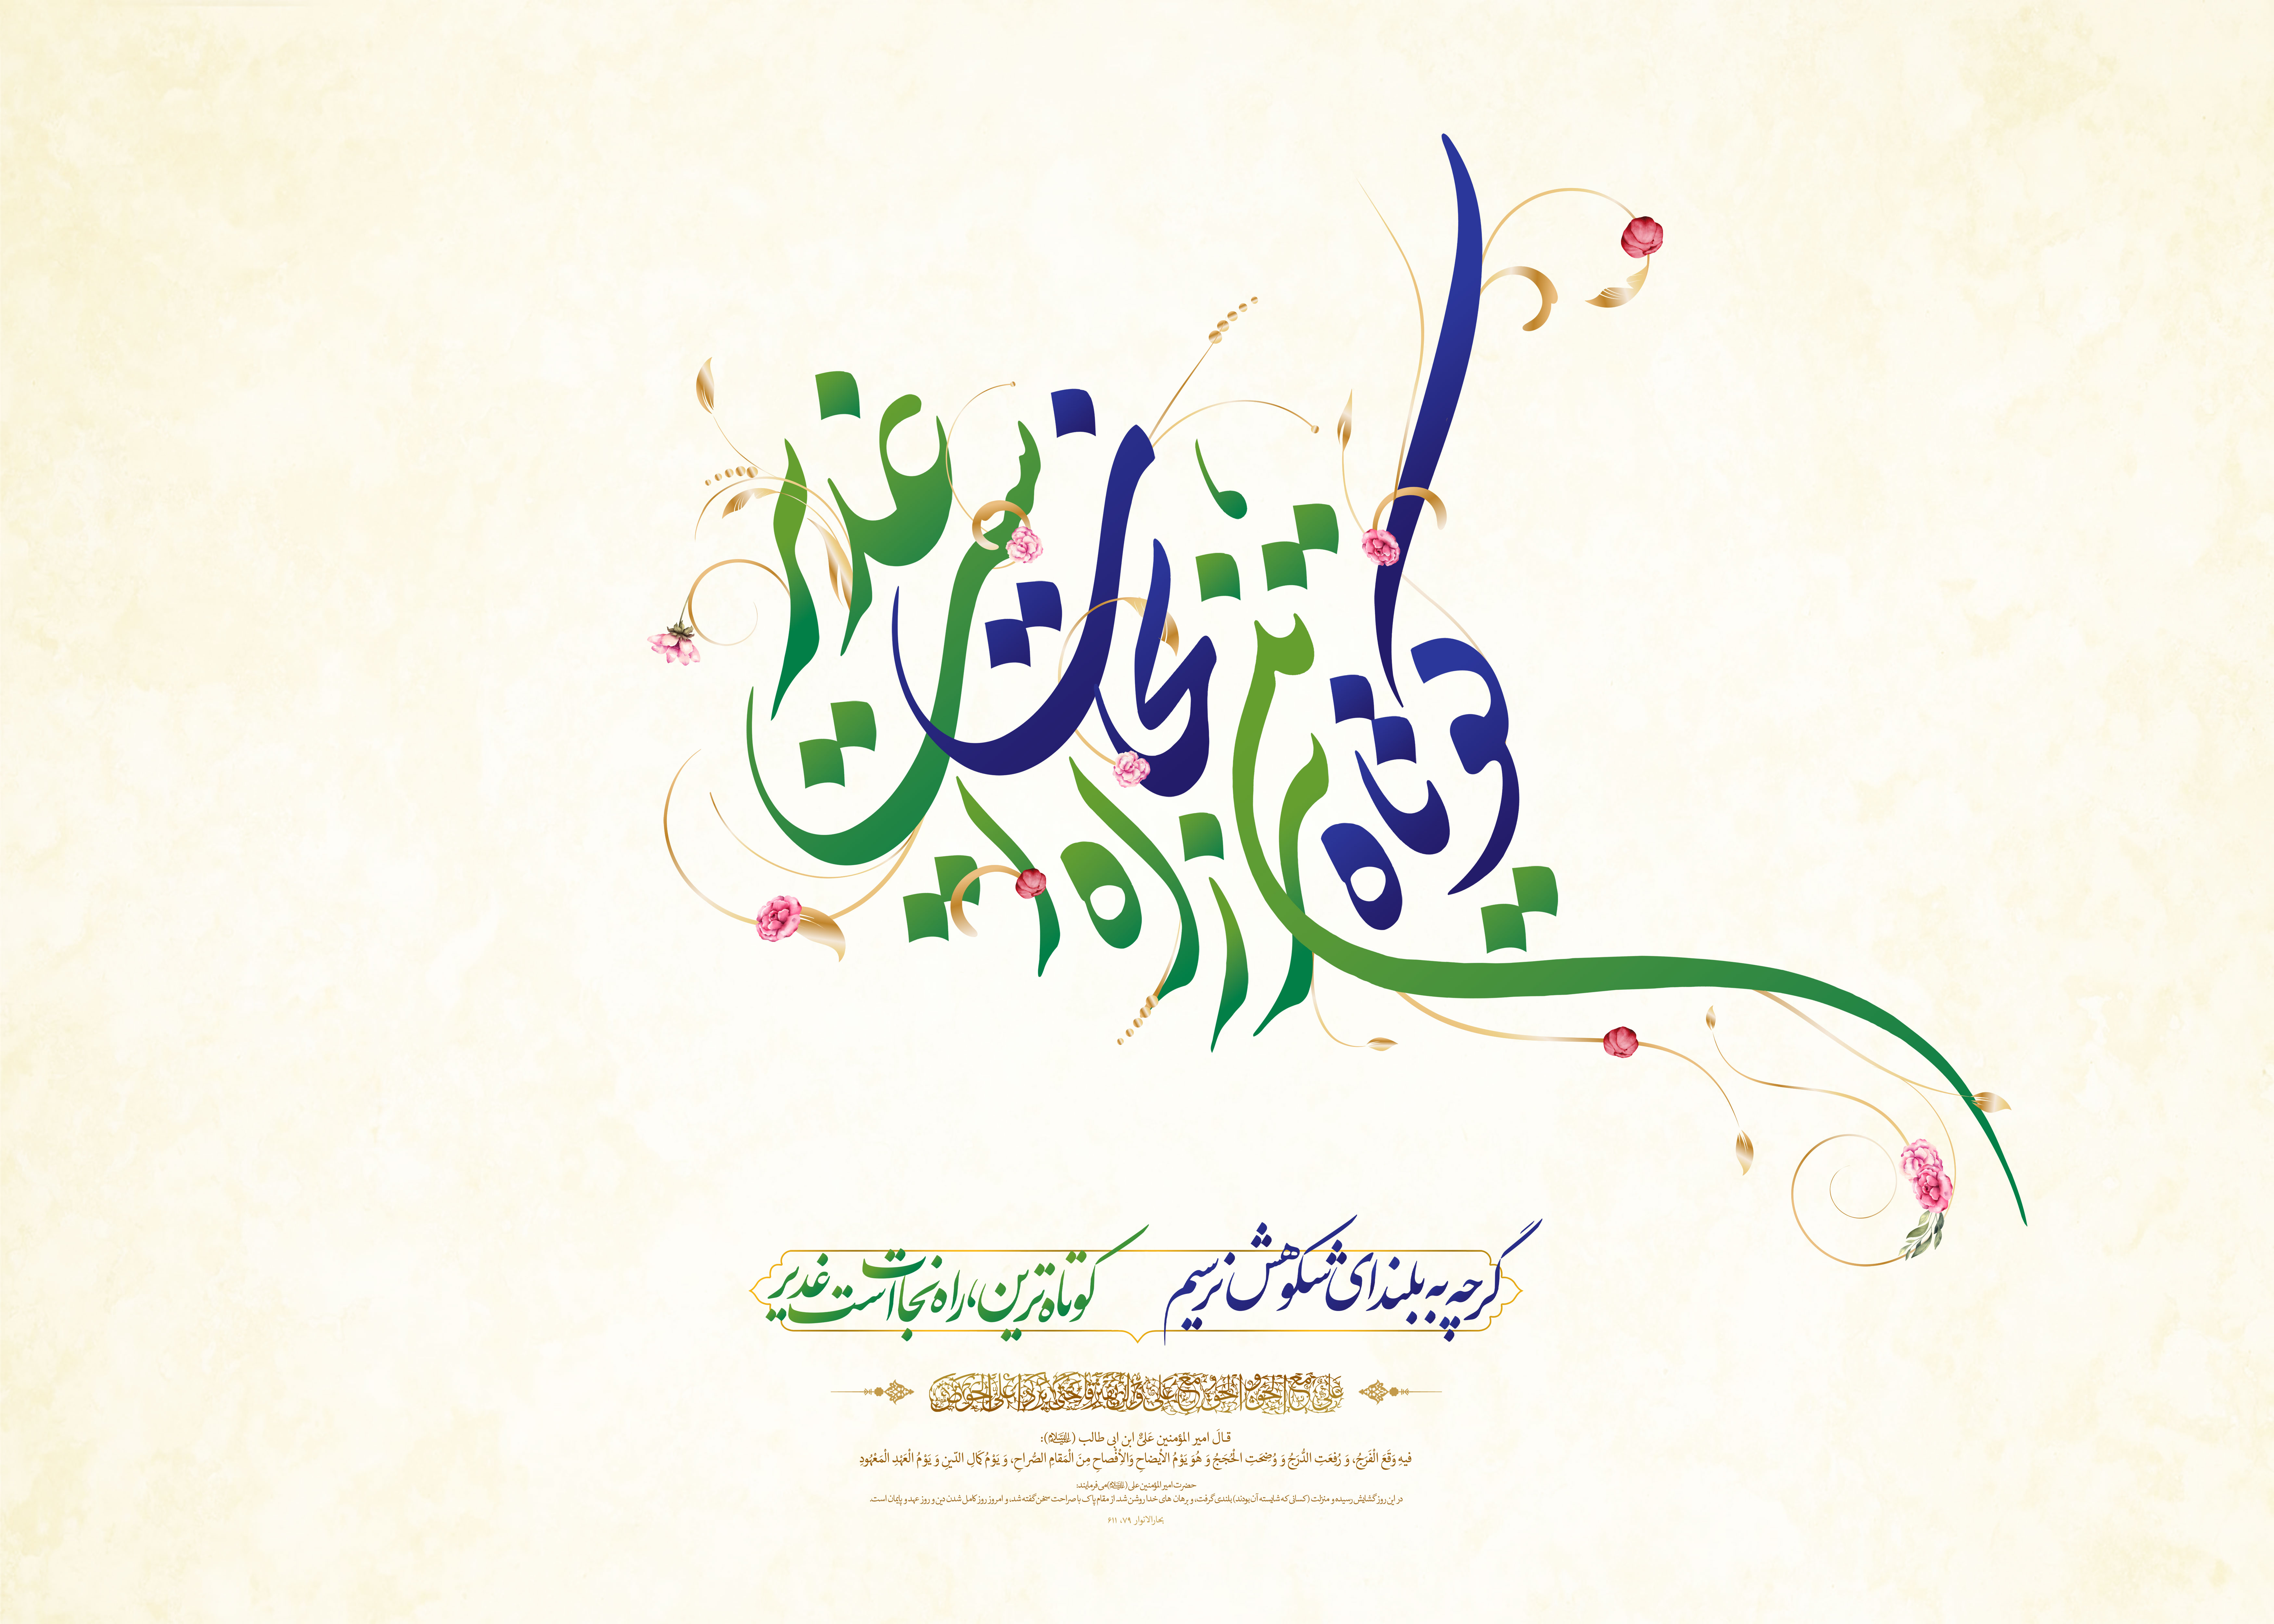 کوتاه ترین راه نجات است غدیر
گرچه به بلندای شکوهش نرسیم
کوتاه ترین، راه نجات است غدیر
عَلِيٌّ مَعَ الْحَقِّ وَ الْحَقُّ مَعَ عَلِيٍّ وَ لَنْ يَفْتَرِقا حَتّى يَرِدا عَلَيَّ الْحَوْضَ
قـالَ امیر المؤمنین عَلیٌّ ابن ابی طالب (علیه‌السلام):
فیهِ وَقَعَ الْفَرَجُ، وَ رُفِعَتِ الدُّرَجُ وَ وُضِحَتِ الْحُجَجُ وَ هُوَ یَوْمُ الأیضاحِ وَالأِفْصاحِ مِنَ الْمَقامِ الصُّراحِ، وَ یَوْمُ کَمالِ الدّینِ وَ یَوْمُ الْعَهْدِ الْمَعْهُودِ
حضرت امیر المؤمنین علی (علیه‌السلام) می‌فرمایند:
در این روز گشایش رسیده و منزلت (کسانی که شایسته آن بودند) بلندی گرفت، و برهان های خدا روشن شد. از مقام پاک با صراحت سخن گفته شد، و امروز روز کامل شدن دین و روز عهد و پایمان است.
بحارالانوار ۷۹، ۶۱۱